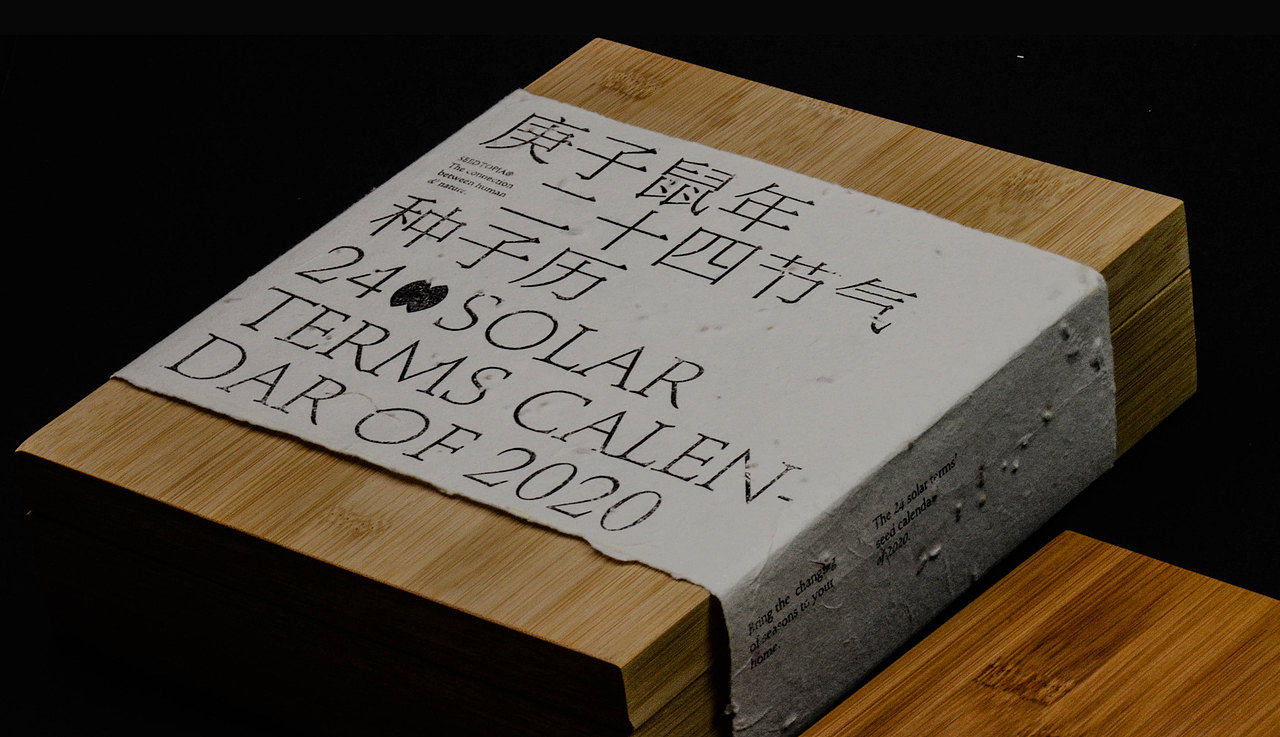 庚子鼠年
SEEDTOPIA®
The connection
between human
& nature.
二十四节气
种子历
24 SOLAR
TERMS CALEN-
DAR OF 2020
The 24 solar terms'
seed calendar
of 2020.
Bring the changing
of seasons to your
home.